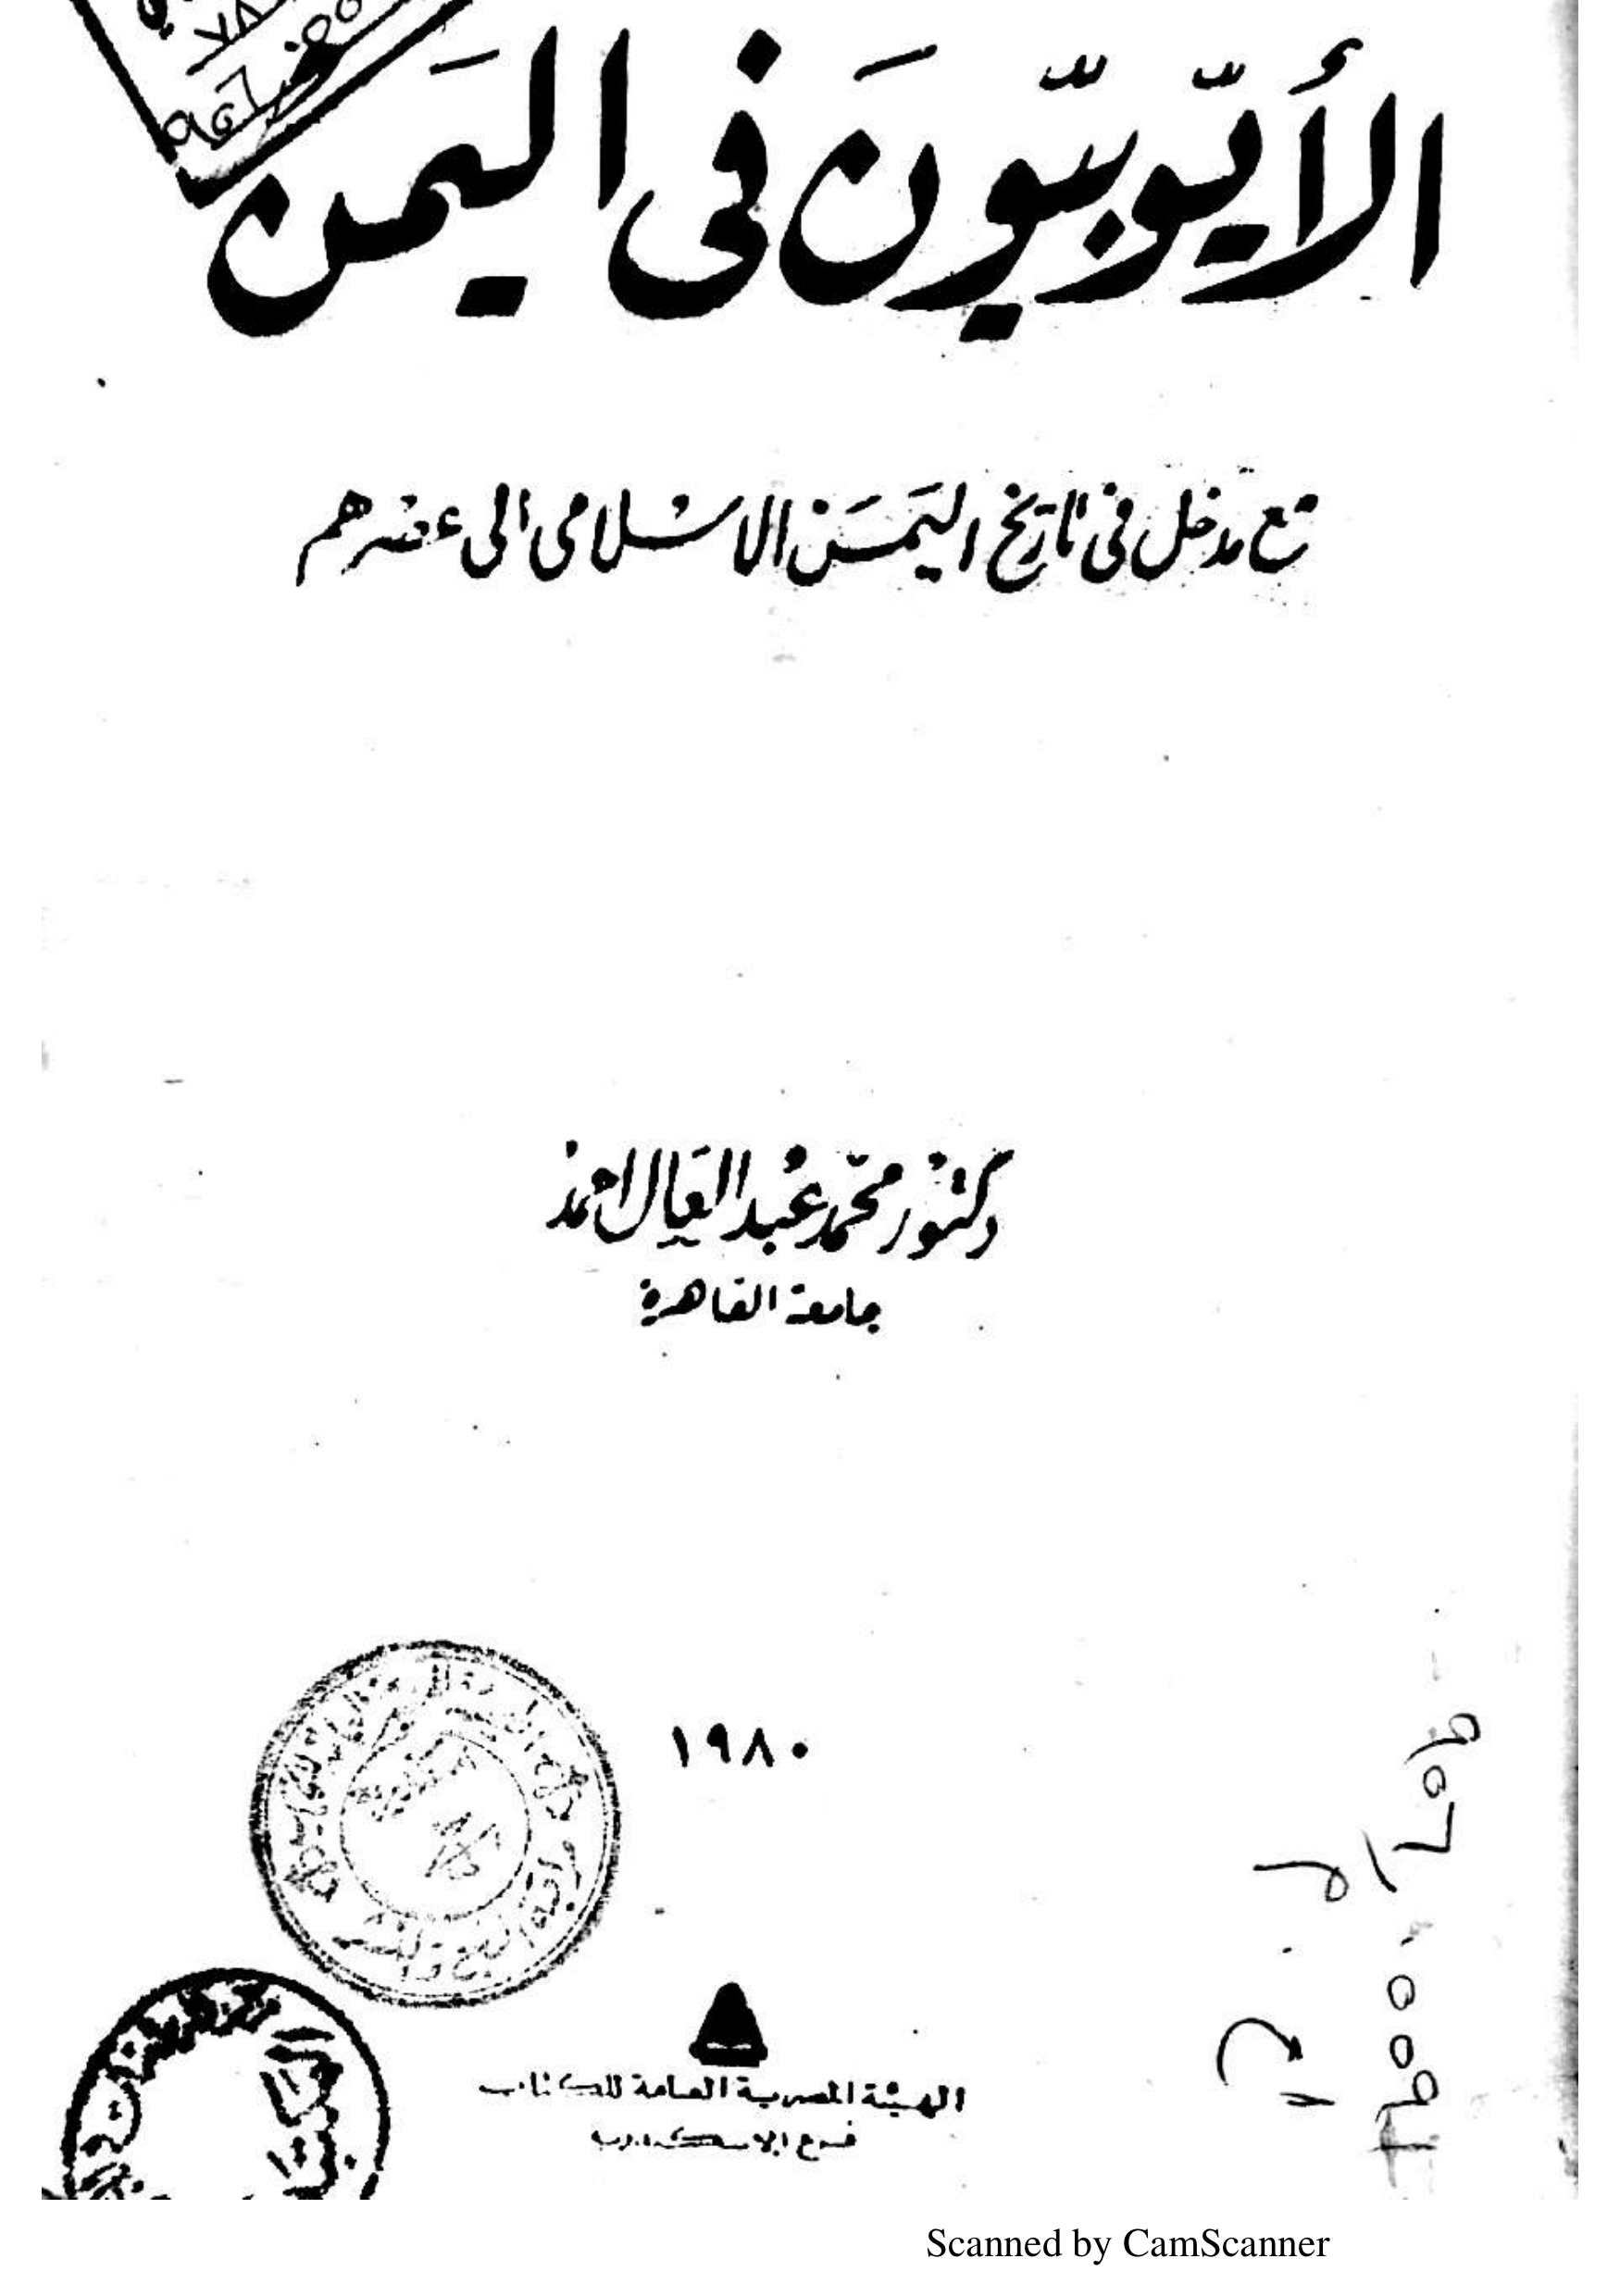 الأيّوبيّون فى اليَمن
مع مدخل فى تاريخ اليَمَن الاسلامى الى عصرهم
دكتور محمّد عبد العال احمد
جامعة القاهرة
١٩٨٠
الهيئة المصرية العامة للكتاب
فرع الاسكندرية
Scanned by CamScanner